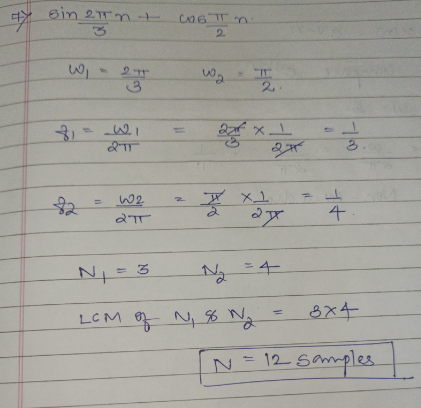 7) sin 2π/3 n + cos π/2 n.
ω₁ = 2π/3 ω₂ = π/2.
f₁ = ω₁/2π = 2π/3 × 1/2π = 1/3.
f₂ = ω₂/2π = π/2 × 1/2π = 1/4.
N₁ = 3 N₂ = 4
LCM of N₁ & N₂ = 3×4
N = 12 samples